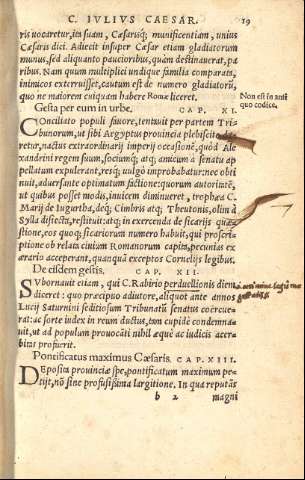 C. IVLIVS CAESAR. 19
ris uocaretur, ita suam, Cæsarisq; munificentiam, unius
Cæsaris dici. Adiecit insuper Cæsar etiam gladiatorum
munus, sed aliquanto paucioribus, quàm destinauerat, pa
ribus. Nam quum multiplici undique familia comparata,
inimicos exterruisset, cautum est de numero gladiatorũ,
quo ne maiorem cuiquam habere Romæ liceret.
Non est in anti
quo codice.
Gesta per eum in urbe. CAP. XI.
COnciliato populi fauore, tentauit per partem Tri
bunorum, ut sibi Aegyptus prouincia plebiscito da
retur, nactus extraordinarij imperij occasionẽ, quòd Ale
xandrini regem suum, sociumq; atq; amicum à senatu ap
pellatum expulerant, resq; uulgò improbabatur: nec obti
nuit, aduersante optimatum factione: quorum autoritatẽ,
ut quibus posset modis, inuicem diminueret, trophæa C.
Marij de Iugurtha, deq; Cimbris atq; Theutonis, olim à
Sylla disiecta, restituit: atq; in exercenda de sicarijs quæ
stione, eos quoq; sicariorum numero habuit, qui proscri
ptione ob relata ciuium Romanorum capita, pecunias ex
ærario acceperant, quanquã exceptos Cornelijs legibus.
De eisdem gestis. CAP. XII.
SVbornauit etiam, qui C. Rabirio perduellionis diem
diceret: quo præcipuo adiutore, aliquot ante annos
Lucij Saturnini seditiosum Tribunatũ senatus coërcue
rat: ac sorte iudex in reum ductus, tam cupidè condemna
uit, ut ad populum prouocãti nihil æquè ac iudicis acer
bitas profuerit.
Pontificatus maximus Cæsaris. CAP. XIII.
DEposita prouinciæ spe, pontificatum maximum pe
tijt, nõ sine profusissima largitione. In qua reputãs
b 2 magni